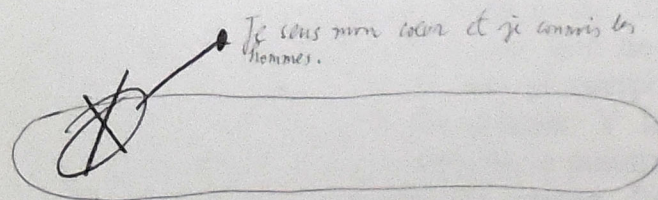 Je sens mon cœur et je connois les
hommes.